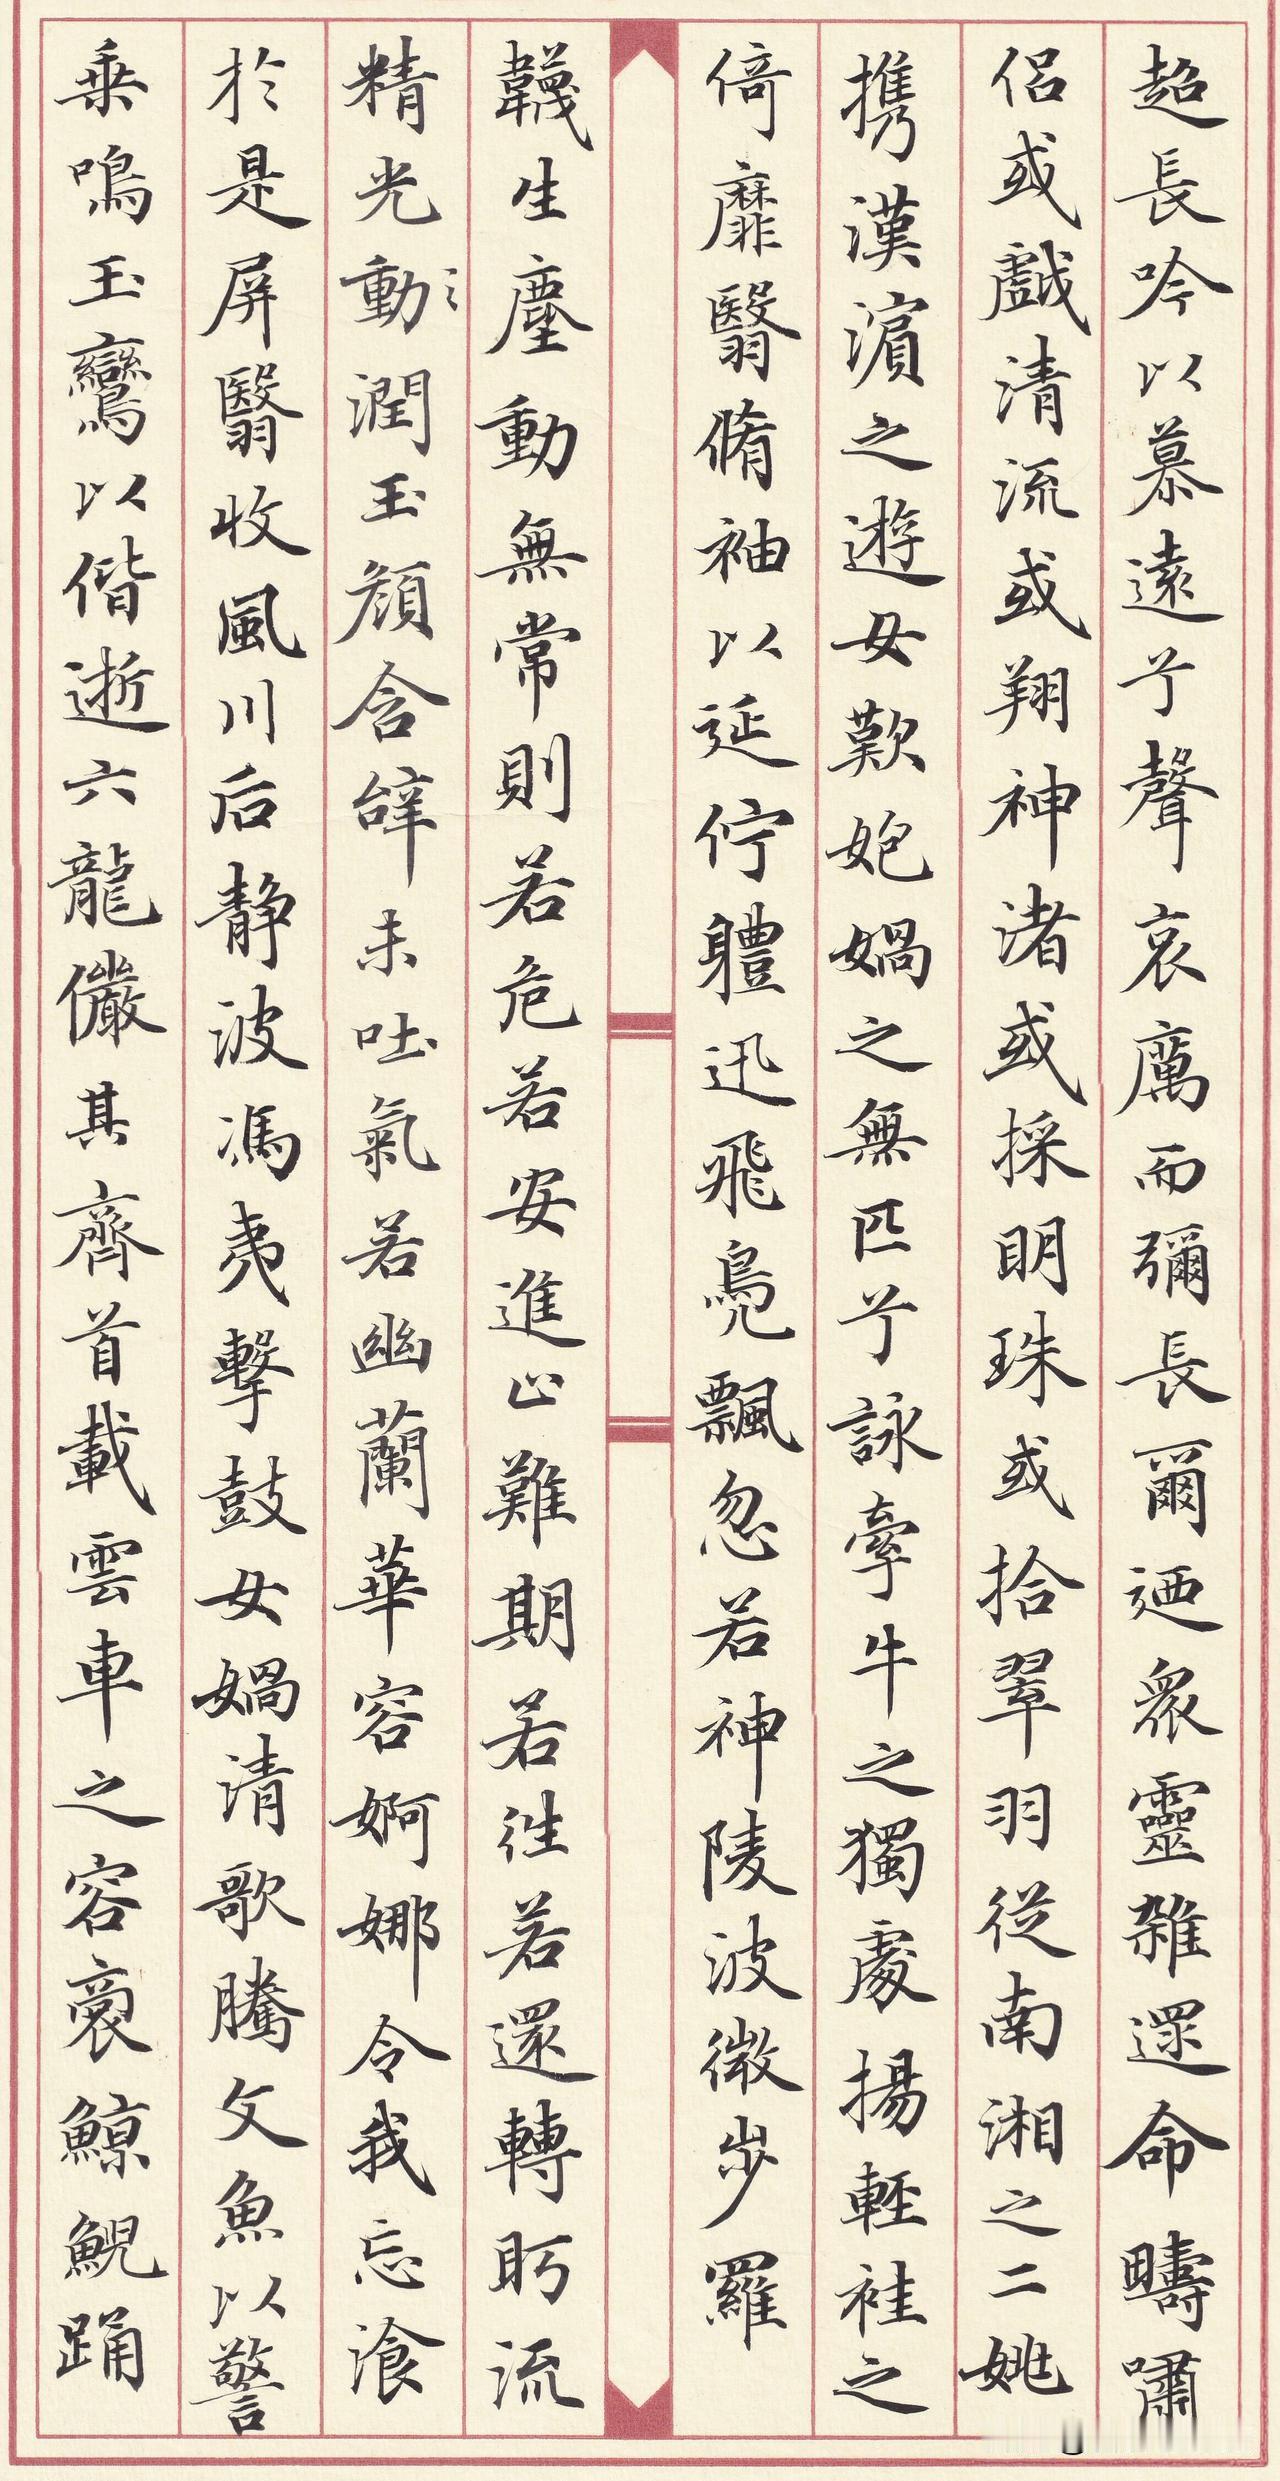 超長吟以慕遠兮聲哀厲而彌長爾迺衆靈雜遝命疇嘯
侣或戲清流或翔神渚或採明珠或拾翠羽從南湘之二姚
携漢濵之遊女歎匏媧之無匹兮詠牽牛之獨處揚輕袿之
倚靡翳脩袖以延佇軆迅飛鳧飄忽若神陵波微步羅
韈生塵動無常則若危若安進止難期若往若還轉眄流
精光動潤玉顔含辞未吐氣若幽蘭華容婀娜令我忘飡
於是屏翳收風川后静波馮夷擊鼓女媧清歌騰文魚以警
乗鳴玉鸞以偕逝六龍儼其齊首載雲車之容裔鯨鯢踊